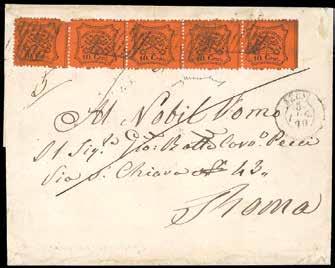 10 Cent. 10 Cent. 10 Cent. 10 Cent. 10 Cent.
Al Nobil Uomo
Il Sig.r Gio: Batta Cav.o Pecci
Via S. Chiara 43
Roma